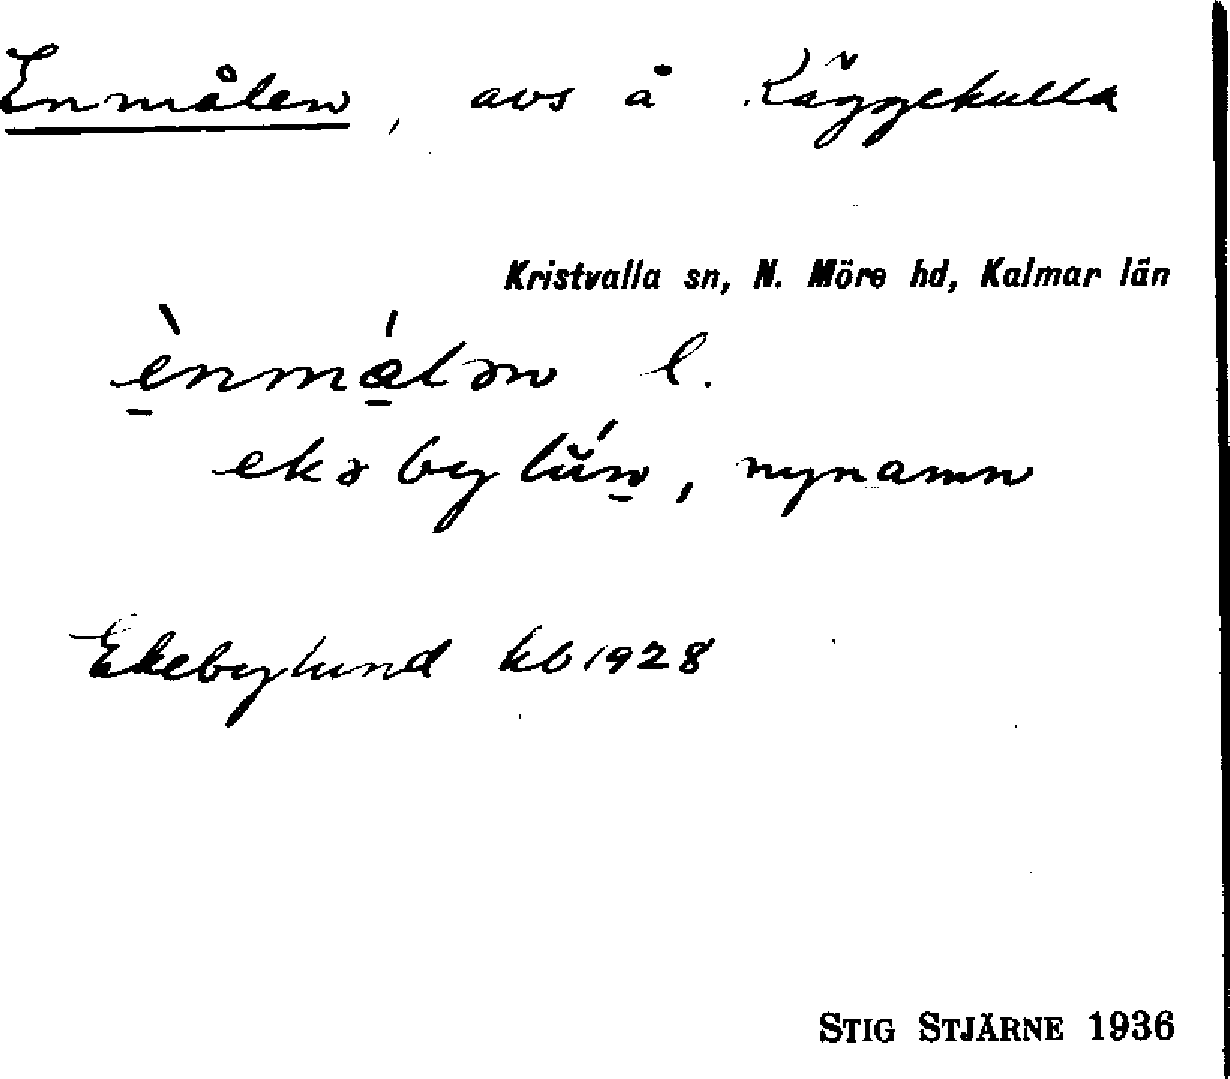 Enmålen, avs å Räggekulla
Kristvalla sn, N. Möre hd, Kalmar län
ènmálən l.
ekəbylún, nynamn
Ekebylund kb 1928
STIG STJÄRNE 1936